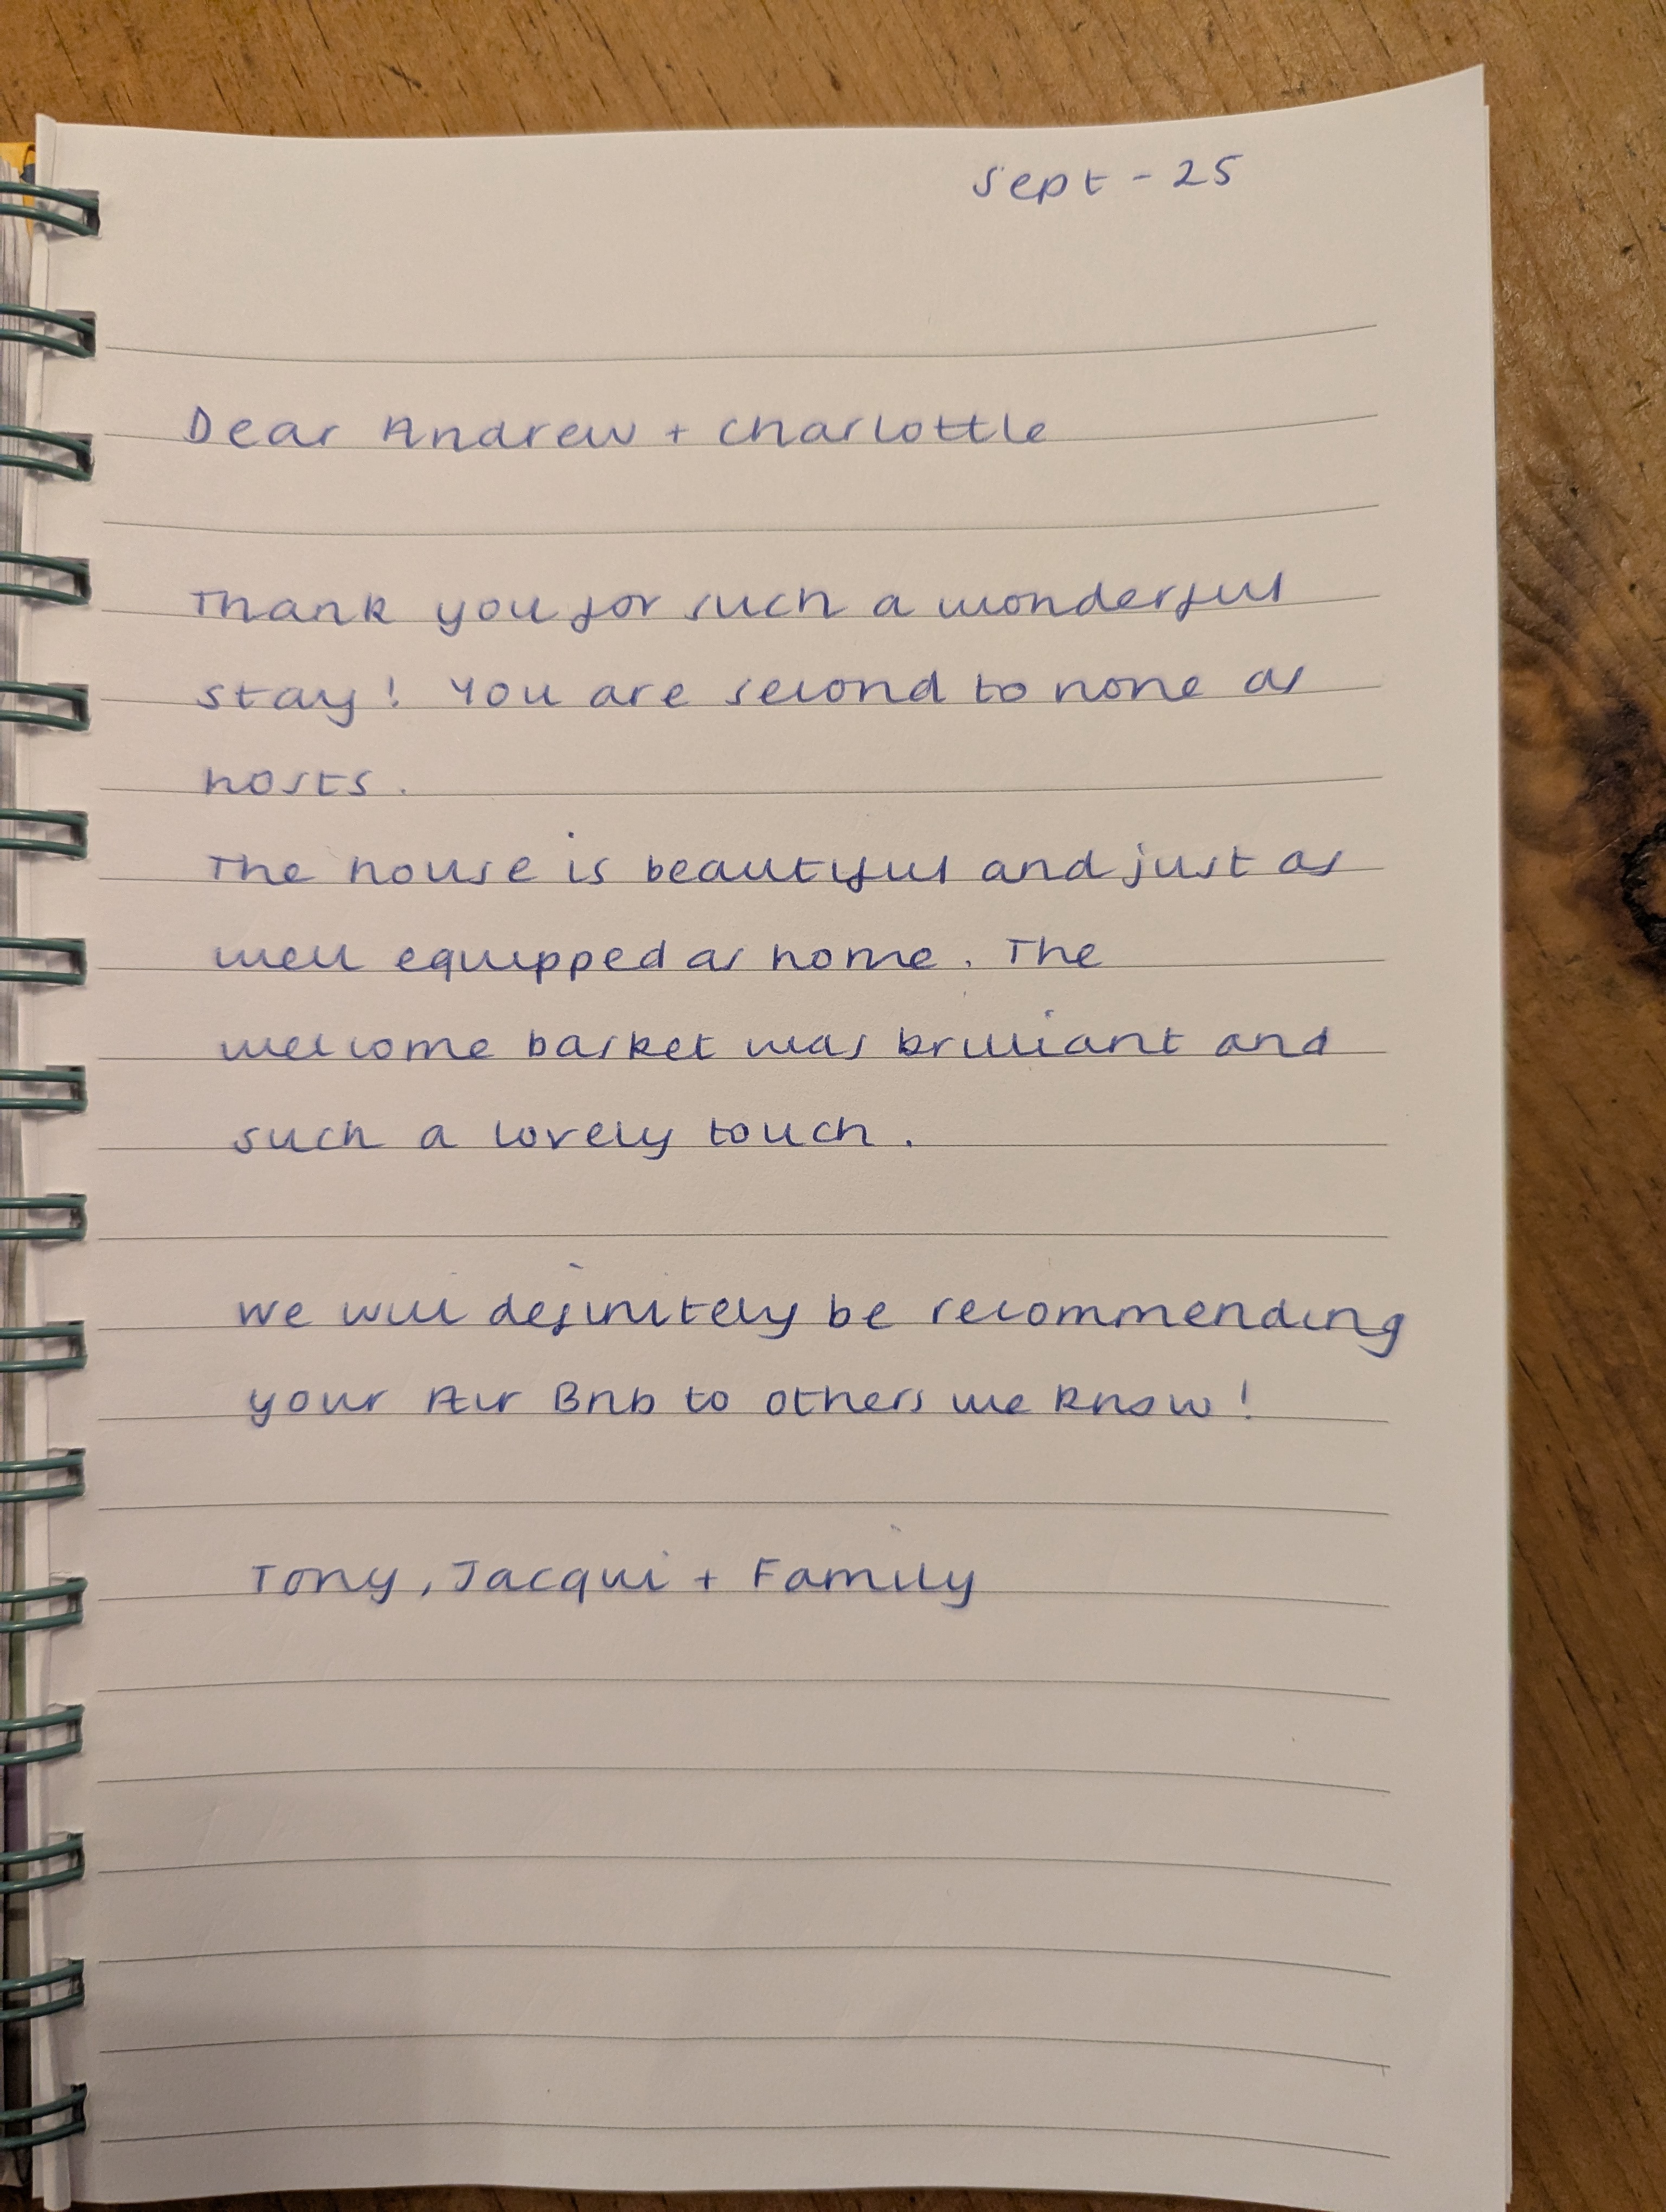 Sept - 25
Dear Andrew + Charlottle
Thank you for such a wonderful
stay! You are second to none as
hosts.
The house is beautiful and just as
well equipped as home. The
welcome basket was brilliant and
such a lovely touch.
We will definitely be recommending
your Air Bnb to others we know!
Tony, Jacqui + Family